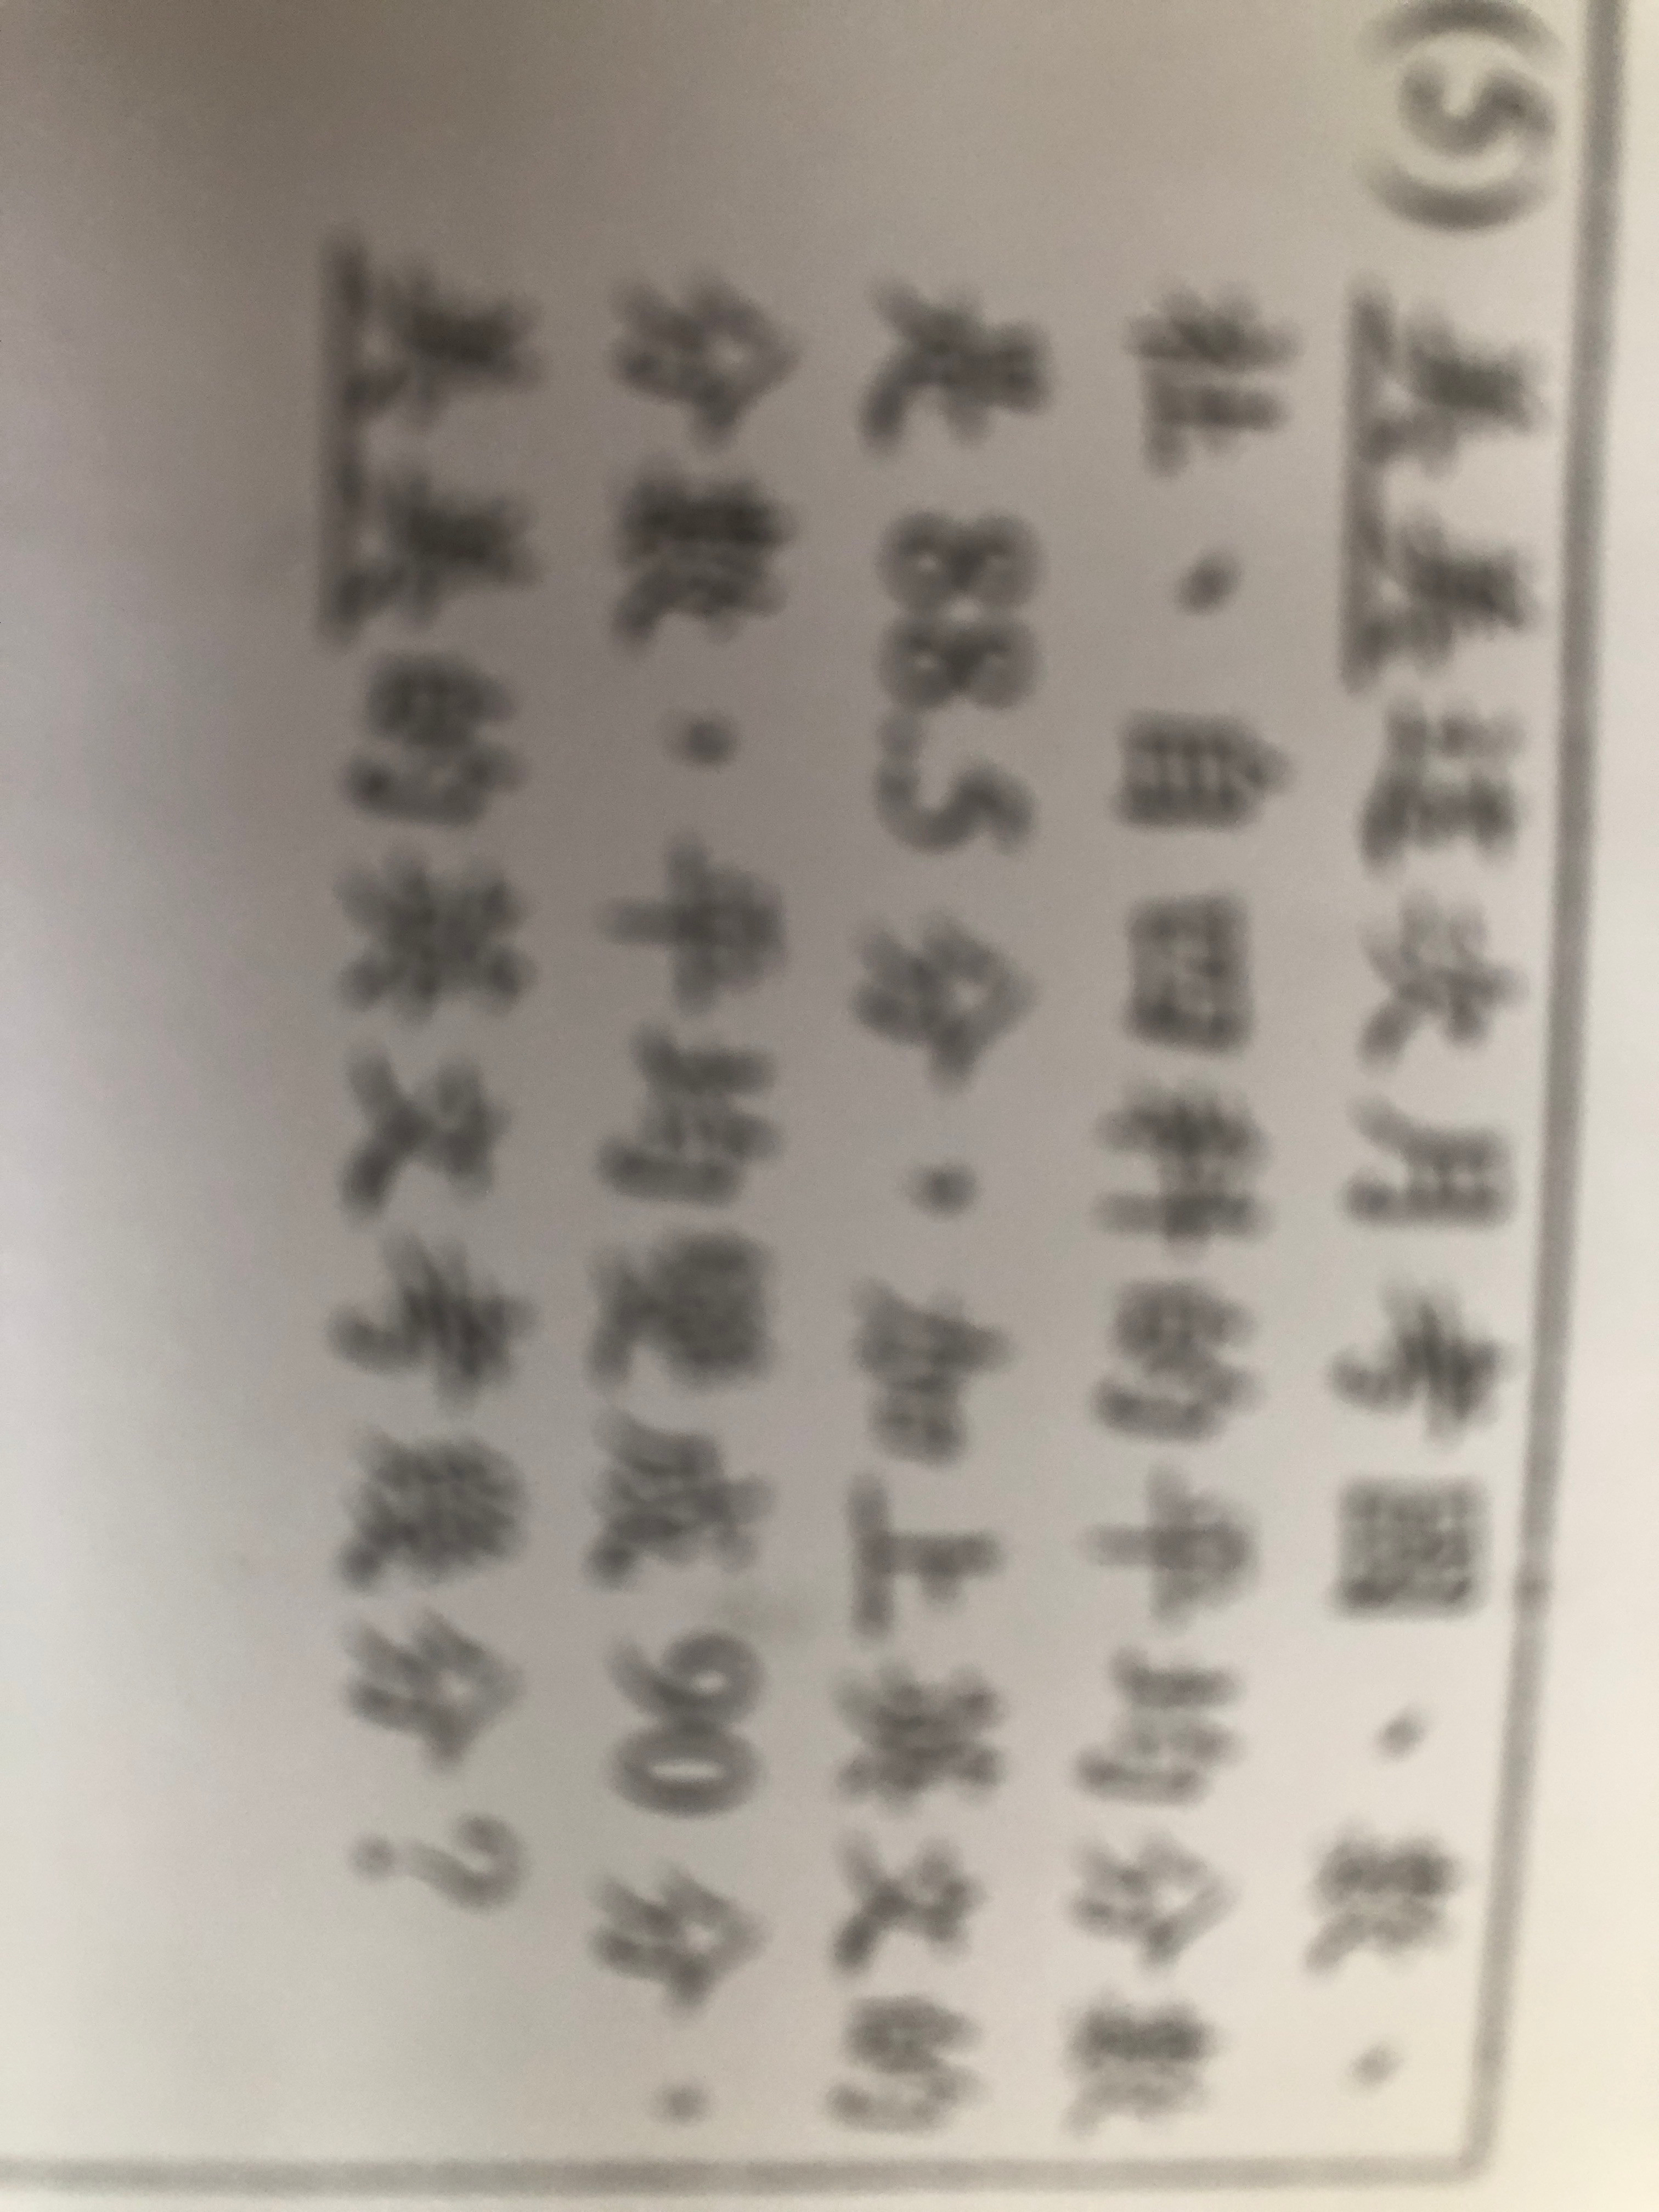 (5) 真真這次月考國、數、
社、自四科的平均分數
是88.5分,加上英文的
分數,平均變成90分,
真真的英文考幾分?